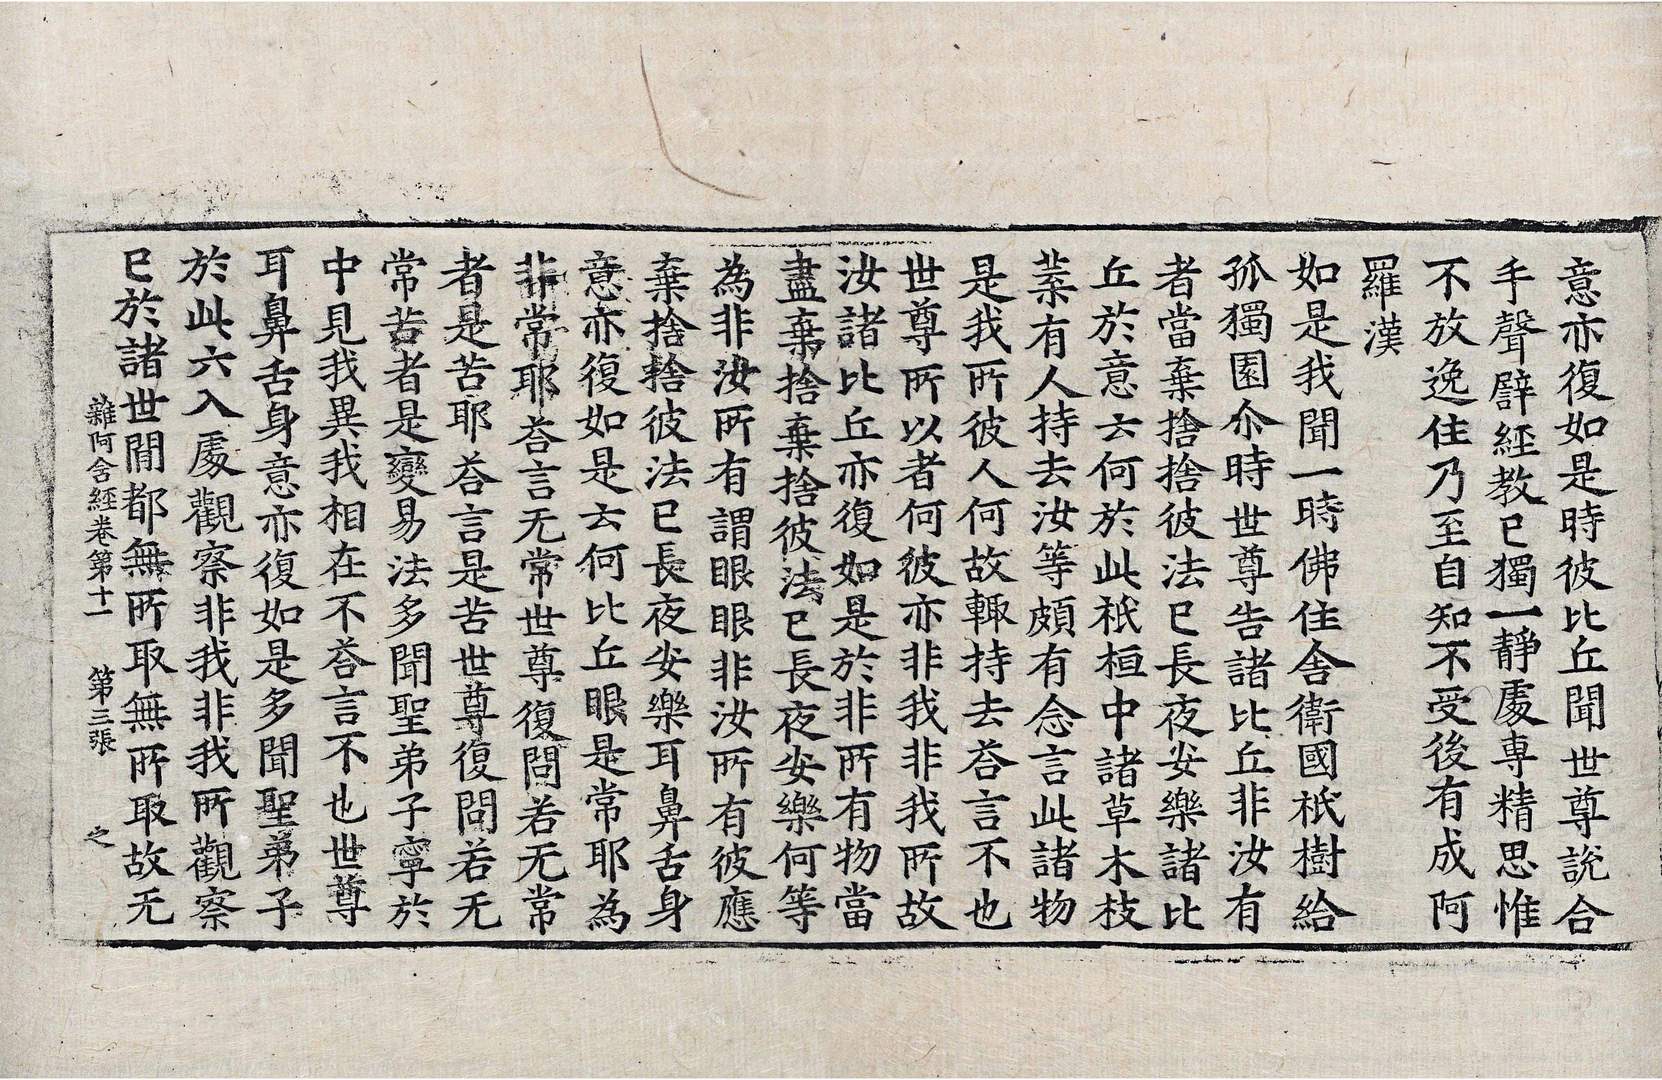 意亦復如是時彼比丘聞世尊說合
手聲譬經教已獨一靜處專精思惟
不放逸住乃至自知不受後有成阿
羅漢
如是我聞一時佛住舍衛國祇樹給
孤獨園尒時世尊告諸比丘非汝有
者當棄捨捨彼法已長夜安樂諸比
丘於意云何於此祇桓中諸草木枝
葉有人持去汝等頗有念言此諸物
是我所彼人何故輙持去荅言不也
世尊所以者何彼亦非我非我所故
汝諸比丘亦復如是於非所有物當
盡棄捨棄捨彼法已長夜安樂何等
為非汝所有謂眼眼非汝所有彼應
棄捨捨彼法已長夜安樂耳鼻舌身
意亦復如是云何比丘眼是常耶為
非常耶荅言无常世尊復問若无常
者是苦耶荅言是苦世尊復問若无
常苦者是變易法多聞聖弟子寧於
中見我異我相在不荅言不也世尊
耳鼻舌身意亦復如是多聞聖弟子
於此六入處觀察非我非我所觀察
已於諸世閒都無所取無所取故无
雜阿含經卷第十一 第三張 之